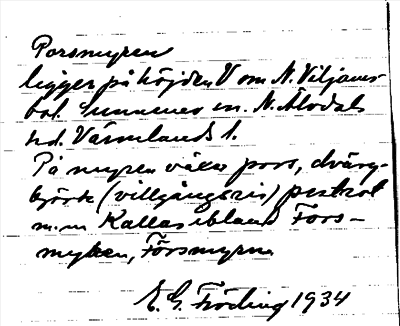 Porsmyren
ligger på höjden V om N. Viljams-
bol. Sunnemo sn. N. Älvdals
hd. Värmlands l.
På myren växer pors, dvärg-
björk (villgångsris) pestrot
m.m Kallas ibland Fors-
myren, Försmyrn
E. G. Fröding 1934